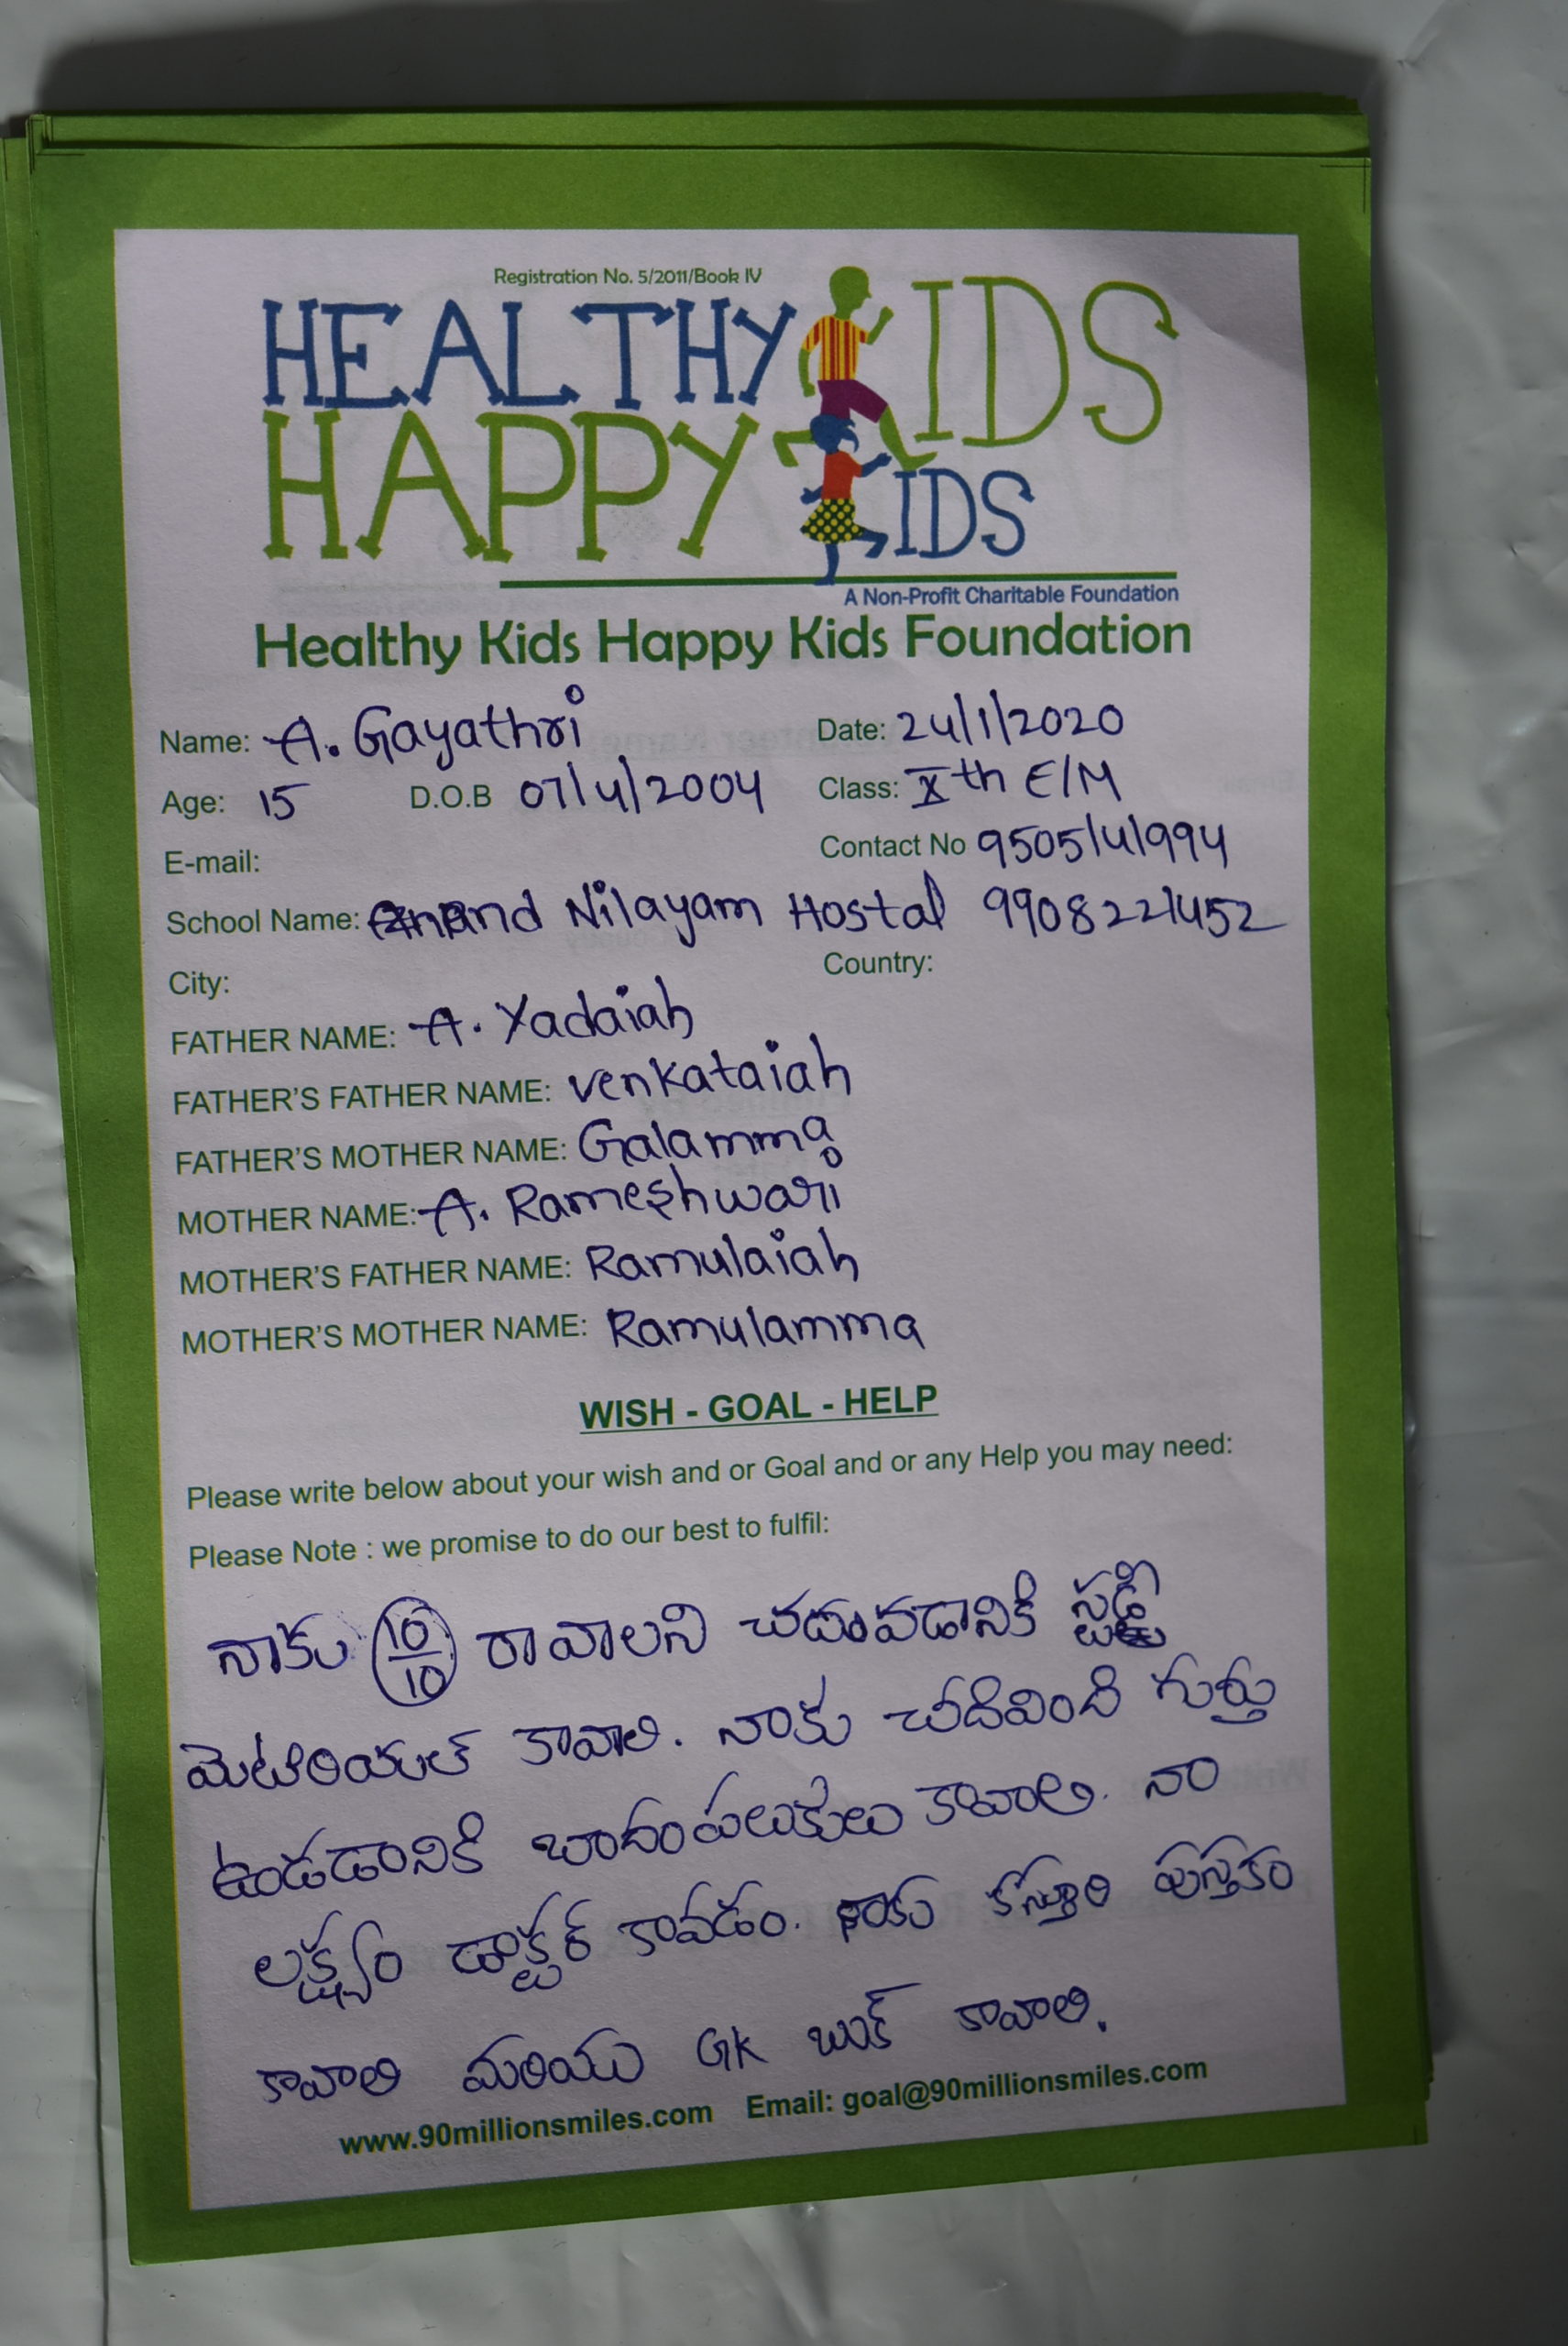 Registration No. 5/2011/Book IV
HEALTHY KIDS
HAPPY KIDS
A Non-Profit Charitable Foundation
Healthy Kids Happy Kids Foundation
Name: A. Gayathri Date: 24/1/2020
Age: 15 D.O.B 07/4/2004 Class: Xth E/M
E-mail: Contact No 9505141994
School Name: Anand Nilayam Hostal 9908221452
City: Country:
FATHER NAME: A. Yadaiah
FATHER'S FATHER NAME: venkataiah
FATHER'S MOTHER NAME: Galamma
MOTHER NAME: A. Rameshwari
MOTHER'S FATHER NAME: Ramulaiah
MOTHER'S MOTHER NAME: Ramulamma
WISH - GOAL - HELP
Please write below about your wish and or Goal and or any Help you may need:
Please Note : we promise to do our best to fulfil:
నాకు 10/10 రావాలని చదువడానికి స్టడీ
మెటీరియల్ కావాలి. నాకు చదివింది గుర్తు
ఉండడానికి బాదంపలుకులు కావాలి. నా
లక్ష్యం డాక్టర్ కావడం. నాకు కస్తూరి పుస్తకం
కావాలి మరియు GK బుక్ కావాలి.
www.90millionsmiles.com Email: goal@90millionsmiles.com